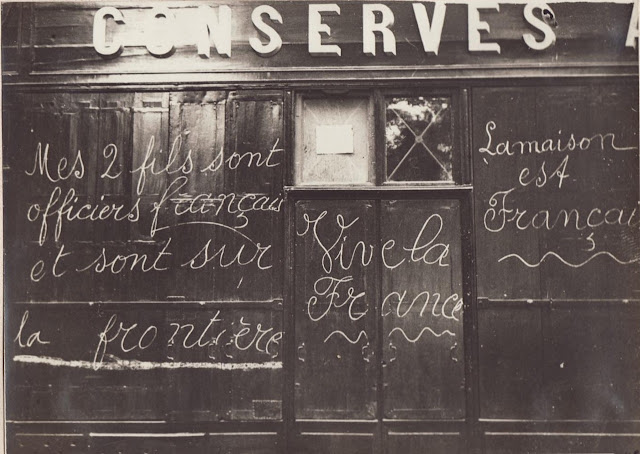 CONSERVES A
Mes 2 fils sont
officiers français
et sont sur
la frontière
Vive la
France
La maison
est
Françai